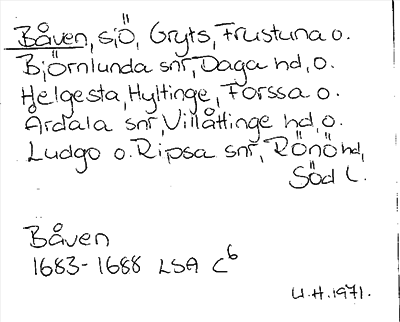 Båven, sjö, Gryts, Frustuna o.
Björnlunda snr, Daga hd, o.
Helgesta, Hyltinge, Forssa o.
Årdala snr, Villåttinge hd, o.
Ludgo o. Ripsa snr, Rönö hd,
Söd l.
Båven
1683-1688 LSA C6
U.H. 1971.